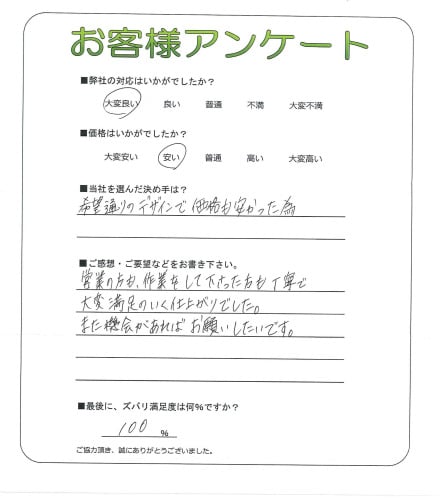 お客様アンケート
■弊社の対応はいかがでしたか?
大変良い 良い 普通 不満 大変不満
■価格はいかがでしたか?
大変安い 安い 普通 高い 大変高い
■当社を選んだ決め手は?
希望通りのデザインで価格も安かった為
■ご感想・ご要望などをお書き下さい。
営業の方も、作業をして下さった方も丁寧で
大変満足のいく仕上がりでした。
また機会があればお願いしたいです。
■最後に、ズバリ満足度は何%ですか?
100 %
ご協力頂き、誠にありがとうございました。